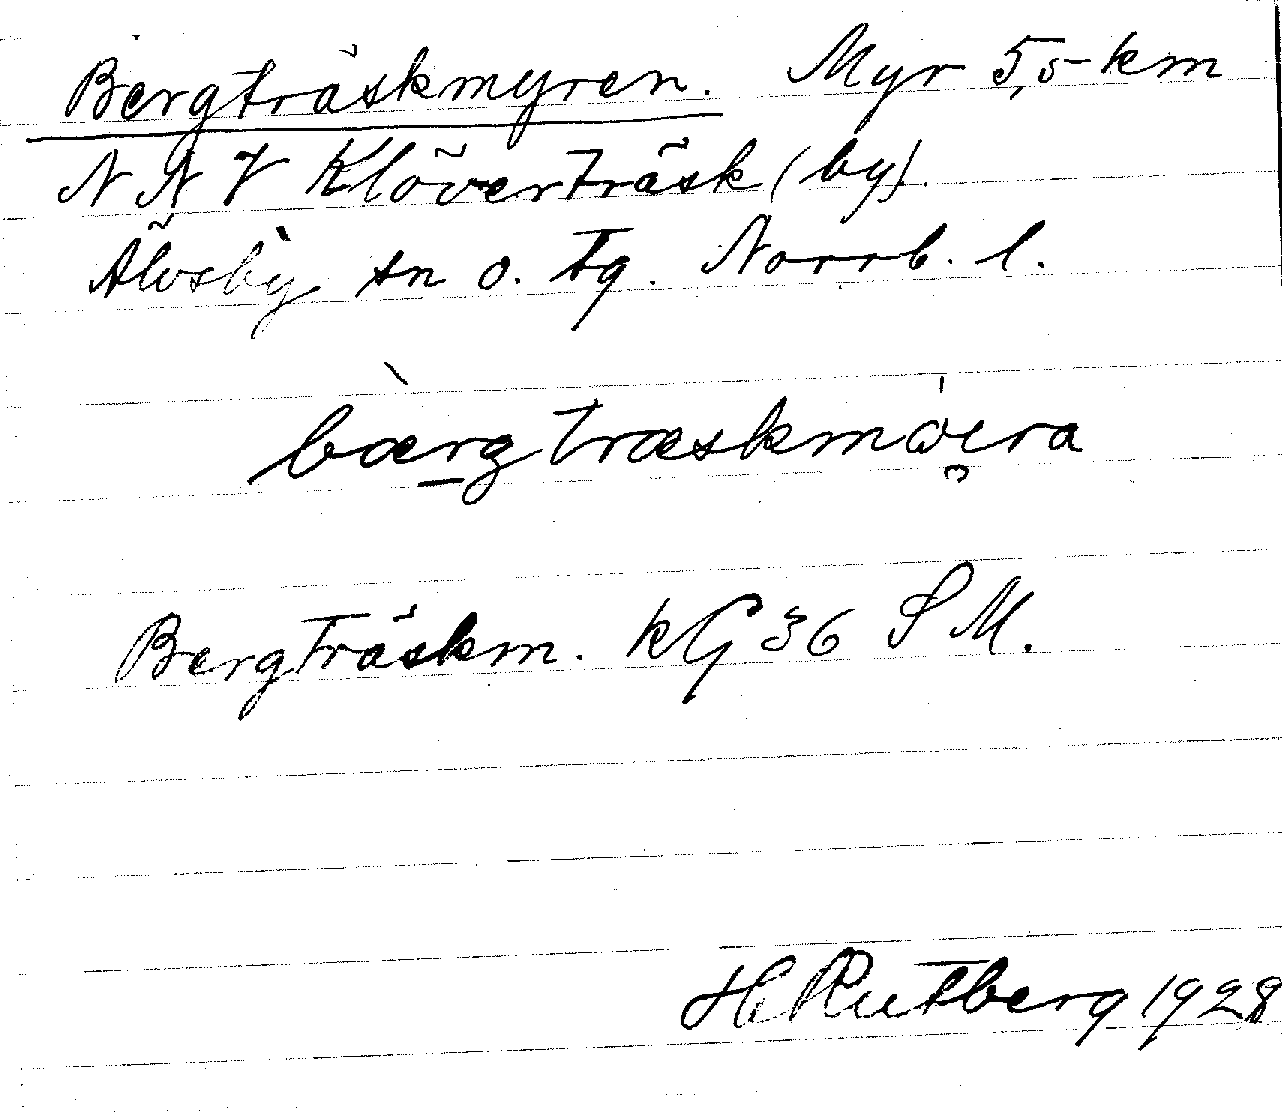 Bergträskmyren. Myr 5,5 km
N N V Klöverträsk (by).
Älvsby sn o. tg. Norrb. l.
bærgtræskmöi̯ra
Bergträskm. kG 36 S M.
H Rutberg 1928